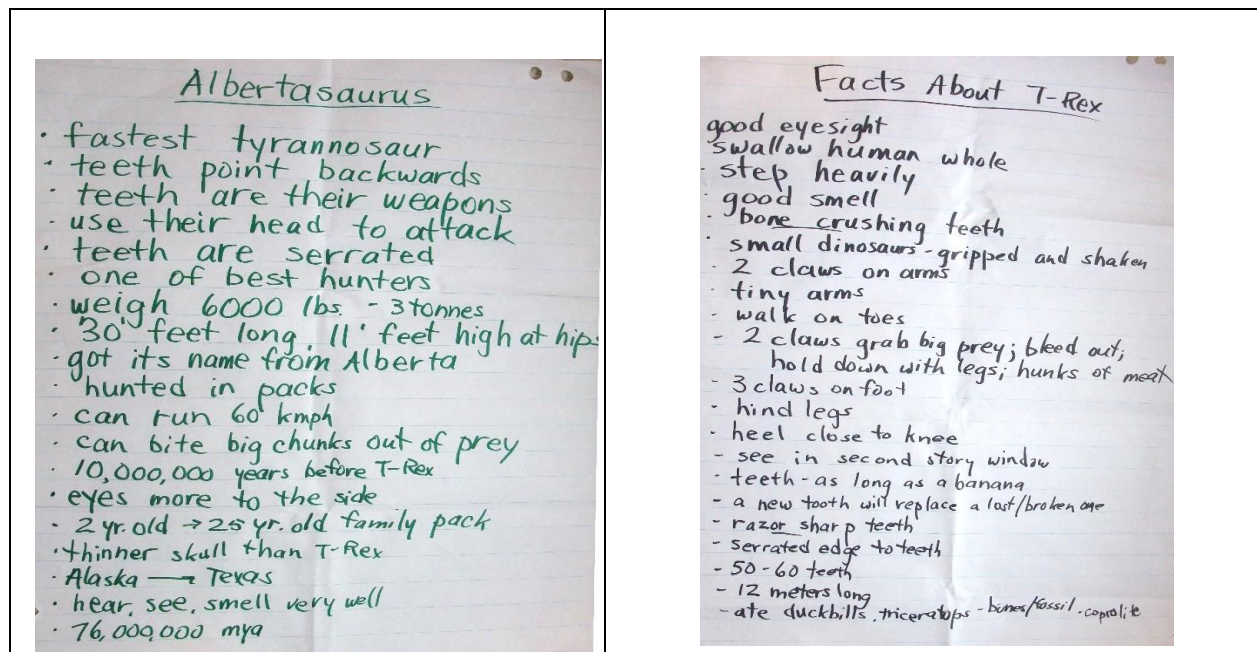 Albertasaurus
· fastest tyrannosaur
· teeth point backwards
· teeth are their weapons
· use their head to attack
· teeth are serrated
· one of best hunters
· weigh 6000 lbs. - 3 tonnes
· 30' feet long, 11' feet high at hips
· got its name from Alberta
· hunted in packs
· can run 60 kmph
· can bite big chunks out of prey
· 10,000,000 years before T-Rex
· eyes more to the side
· 2 yr. old → 25 yr. old family pack
· thinner skull than T-Rex
· Alaska → Texas
· hear, see, smell very well
· 76,000,000 mya
Facts About T-Rex
good eyesight
swallow human whole
- step heavily
· good smell
· bone crushing teeth
· small dinosaurs - gripped and shaken
· 2 claws on arms
- tiny arms
- walk on toes
- 2 claws grab big prey; bleed out;
hold down with legs; hunks of meat
- 3 claws on foot
- hind legs
- heel close to knee
- see in second story window
- teeth - as long as a banana
- a new tooth will replace a lost/broken one
- razor sharp teeth
- serrated edge to teeth
- 50-60 teeth
- 12 meters long
- ate duckbills, triceratops - bones/fossil. coprolite